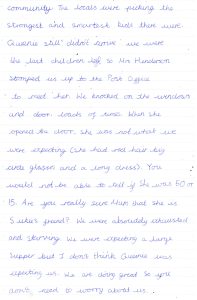 community. The locals were picking the
strongest and smartest kids then were.
Queenie still didn't arrive we were
the last children left so Mr Henderson
stomped us up to the Post Office
to meet her. We knocked on the windows
and door loads of times. When she
opened the door she was not what we
were expecting (she had red hair, big
circle glasses and a long dress). You
would not be able to tell if she was 50 or
15. Are you really sure Mum that she is
friend? We were absolutely exhausted
and starving. We were expecting a large
supper but I don't think Queenie was
expecting us. We are doing great so you
don't need to worry about us.